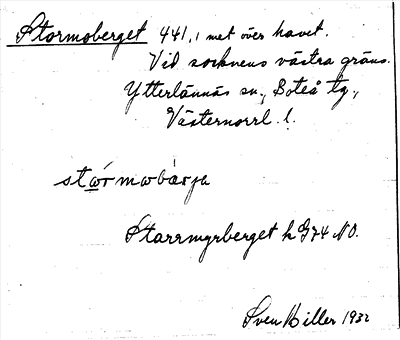 Stormoberget 441,1 met över havet.
Vid socknens västra gräns.
Ytterlännäs sn., Boteå tg.,
Västernorrl. l.
Starrmyrberget k G74 NO.
Sven Hiller 1932